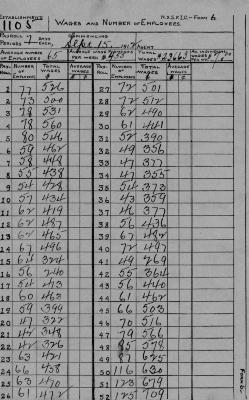 ESTABLISHMENT
1105
WAGES AND NUMBER OF EMPLOYEES.
N.Y.S.F.I.C.—FORM 6
PAYROLL PERIODS 7 DAYS EACH,
COMMENCING Sept 15, 191 AGENT
AVERAGE NUMBER OF EMPLOYEES 65
AVERAGE WAGE PER WEEK $
TOTAL WAGES
PAY ROLL NUMBER OF EMPLOY. TOTAL WAGES AVERAGE WAGES PAY ROLL NUMBER OF EMPLOY. TOTAL WAGES AVERAGE WAGES
1 77 526 27 72 501
2 73 500 28 72 512
3 78 531 29 62 490
4 78 560 30 61 441
5 80 546 31 52 390
6 59 462 32 49 356
7 58 448 33 47 377
8 55 438 34 47 355
9 54 428 35 54 373
10 57 434 36 43 359
11 62 419 37 46 377
12 62 487 38 56 436
13 62 465 39 67 482
14 67 496 40 72 497
15 64 324 41 49 269
16 56 240 42 55 364
17 54 413 43 56 440
18 60 463 44 61 462
19 59 399 45 66 503
20 47 322 46 70 516
21 42 348 47 79 566
22 42 326 48 85 578
23 63 421 49 87 625
24 66 458 50 116 630
25 63 470 51 123 679
26 61 472 52 125 709
FORM 6